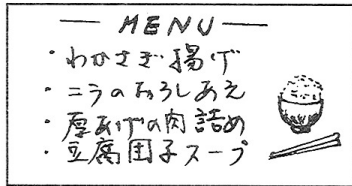 MENU
・わかさぎ揚げ
・ニラのおろしあえ
・厚あげの肉詰め
・豆腐団子スープ